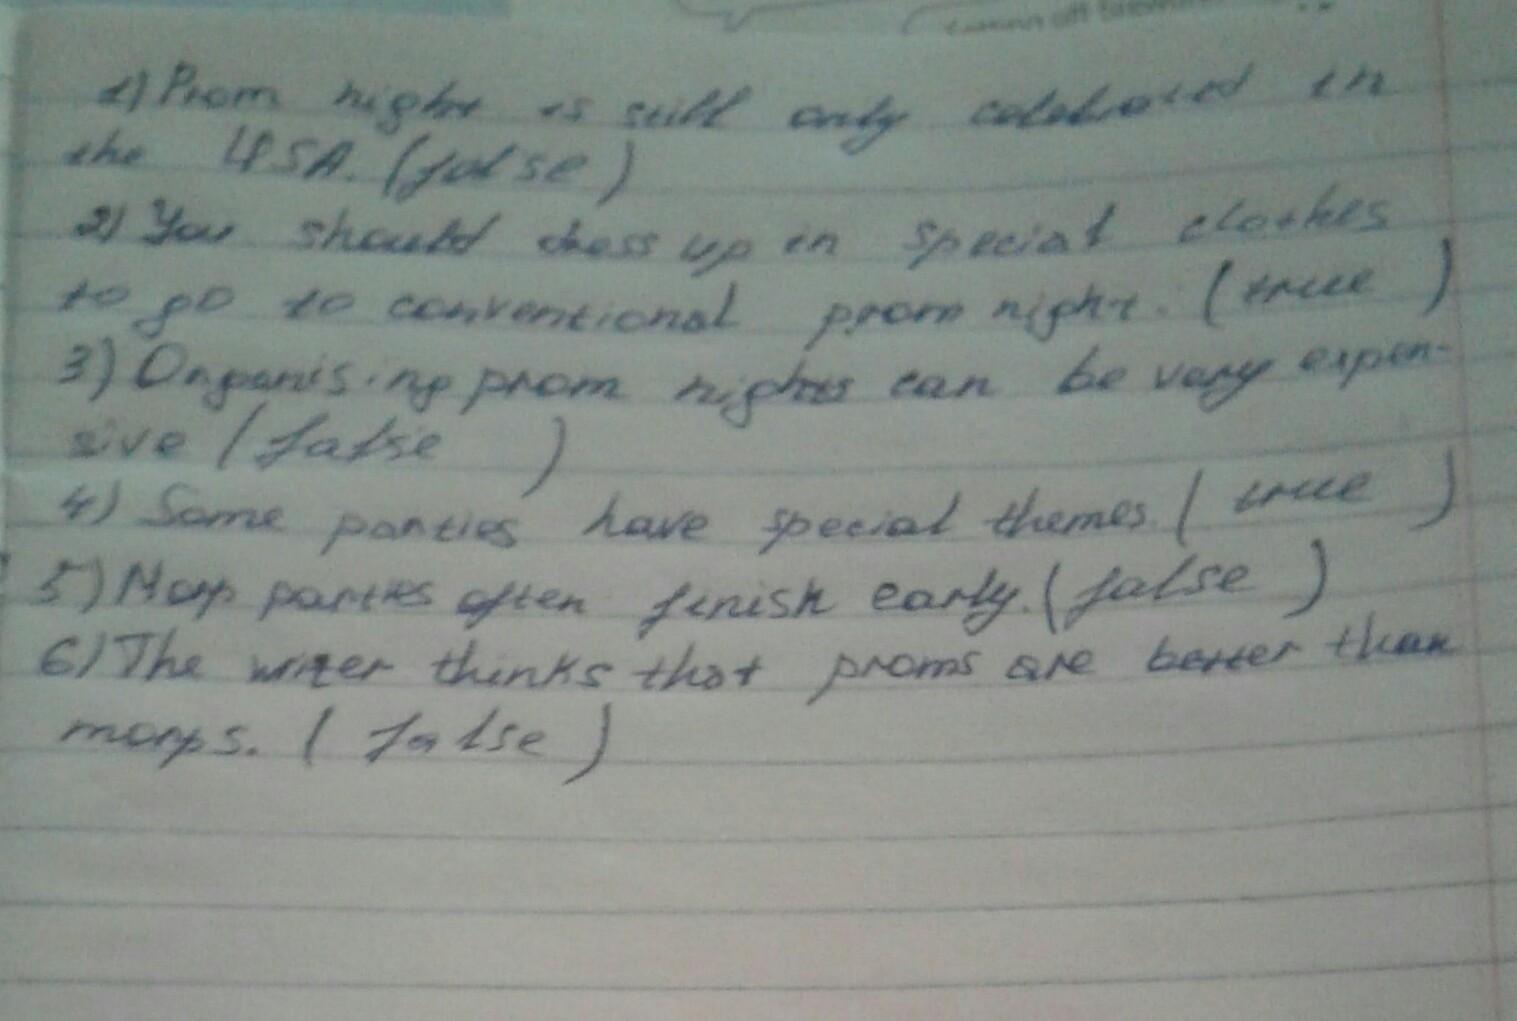 1) Prom night is still only celebrated in
the USA. (false)
2) You should dress up in special clothes
to go to conventional prom night. (true)
3) Organising prom nights can be very expen-
sive (false)
4) Some parties have special themes. (true)
5) Morp parties often finish early. (false)
6) The writer thinks that proms are better than
morps. (false)